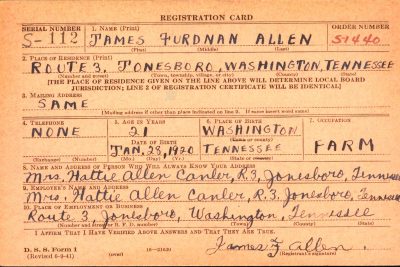 REGISTRATION CARD
SERIAL NUMBER 1. NAME (Print) ORDER NUMBER
S-112 JAMES FURDNAN ALLEN S1440
(First) (Middle) (Last)
2. PLACE OF RESIDENCE (Print)
ROUTE 3, JONESBORO, WASHINGTON, TENNESSEE
(Number and street) (Town, township, village, or city) (County) (State)
[THE PLACE OF RESIDENCE GIVEN ON THE LINE ABOVE WILL DETERMINE LOCAL BOARD
JURISDICTION; LINE 2 OF REGISTRATION CERTIFICATE WILL BE IDENTICAL]
3. MAILING ADDRESS
SAME
[Mailing address if other than place indicated on line 2. If same insert word same]
4. TELEPHONE 5. AGE IN YEARS 6. PLACE OF BIRTH 7. OCCUPATION
NONE 21 WASHINGTON
DATE OF BIRTH (Town or county)
JAN. 1920 TENNESSEE FARM
(Exchange) (Number) (Mo.) (Day) (Yr.) (State or country)
8. NAME AND ADDRESS OF PERSON WHO WILL ALWAYS KNOW YOUR ADDRESS
Mrs. Hattie Allen Canler, R.3, Jonesboro, Tennessee
9. EMPLOYER'S NAME AND ADDRESS
Mrs. Hattie Allen Canler, R.3, Jonesboro, Tennessee
10. PLACE OF EMPLOYMENT OR BUSINESS
Route 3, Jonesboro, Washington, Tennessee
(Number and street or R. F. D. number) (Town) (County) (State)
I AFFIRM THAT I HAVE VERIFIED ABOVE ANSWERS AND THAT THEY ARE TRUE.
D. S. S. Form 1 James F Allen
(Revised 6-9-41) (over) 16—21630 (Registrant's signature)